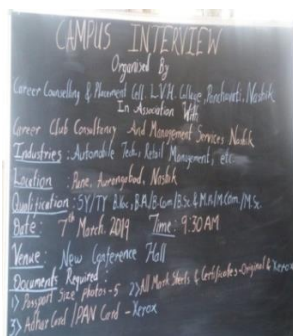 CAMPUS INTERVIEW
Organised By
Career Counselling & Placement Cell, L.V.H. College, Panchavati, Nashik
In Association With
Career Club Consultancy And Management Services Nashik
Industries : Automobile Tech, Retail Management, etc.
Location : Pune, Aurangabad, Nashik
Qualification : SY/TY B.Voc, BA/B.Com/B.Sc & M.A/M.Com/M.Sc.
Date : 7th March, 2019 Time : 9:30 AM
Venue : New Conference Hall
Documents Required :
1) Passport Size Photos-5 2) All Mark Sheets & Certificates-Original & Xerox
3) Adhar Card / PAN Card - Xerox